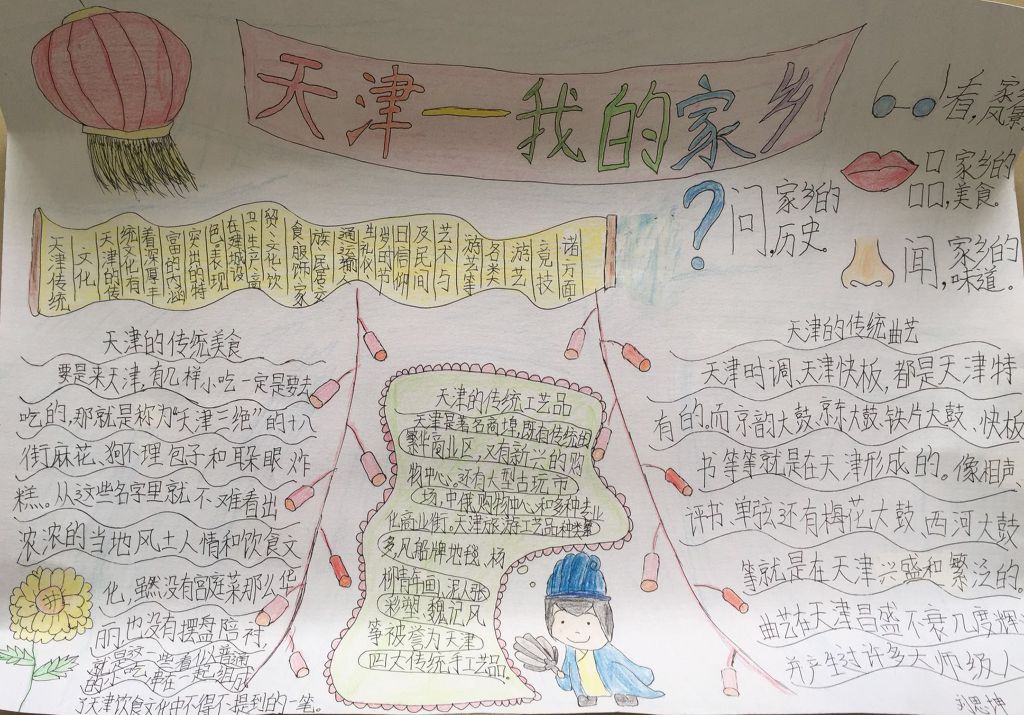 天津一我的家乡
看,家
风景
口 家乡的
口口,美食。
问 家乡的
问,历史。
闻,家乡的
味道。
天津传统
文化
天津的传
统文化有
着深厚丰
富的内涵
突出的特
色,表现
在建城设
卫、生产、商
贸、文化、饮
食、服饰、家
族、居住、交
通运输、人
生礼仪、
岁时节
日、信仰
及民间
艺术与
游艺等
各类
游艺
竞技
诸方面。
天津的传统美食
要是来天津,有几样小吃一定是要去
吃的,那就是称为“天津三绝”的十八
街麻花、狗不理包子和耳朵眼炸
糕。从这些名字里就不难看出
浓浓的当地风土人情和饮食文
化,虽然没有宫庭菜那么华
丽,也没有摆盘陪衬,
就是这一些看似普通
的小吃,串在一起组成
了天津饮食文化中不得不提到的一笔。
天津的传统工艺品
天津是著名商埠,既有传统的
繁华商业区,又有新兴的购
物中心,还有大型古玩市
场,中俄购物中心和多种专业
化商业街。天津旅游工艺品种类繁
多,风船牌地毯、杨
柳青年画,泥人张
彩塑、魏记风
等被誉为天津
四大传统手工艺品。
天津的传统曲艺
天津时调,天津快板,都是天津特
有的。而京韵大鼓,京东大鼓,铁片大鼓、快板
书等等就是在天津形成的。像相声、
评书、单弦还有梅花大鼓、西河大鼓
等就是在天津兴盛和繁泛的。
曲艺在天津昌盛不衰,几度
并产生过许多大师级人